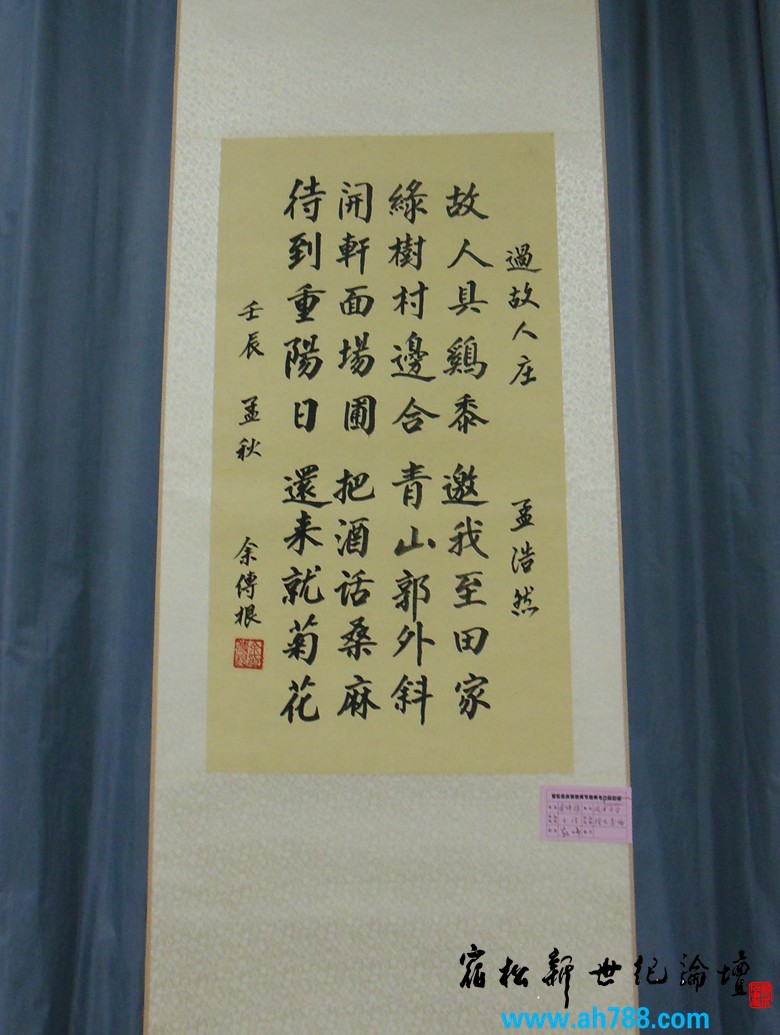 過故人庄 孟浩然
故人具鷄黍 邀我至田家
綠樹村邊合 青山郭外斜
開軒面場圃 把酒话桑麻
待到重陽日 還来就菊花
壬辰 孟秋 余傳根
宿松新世纪論壇
www.ah788.com